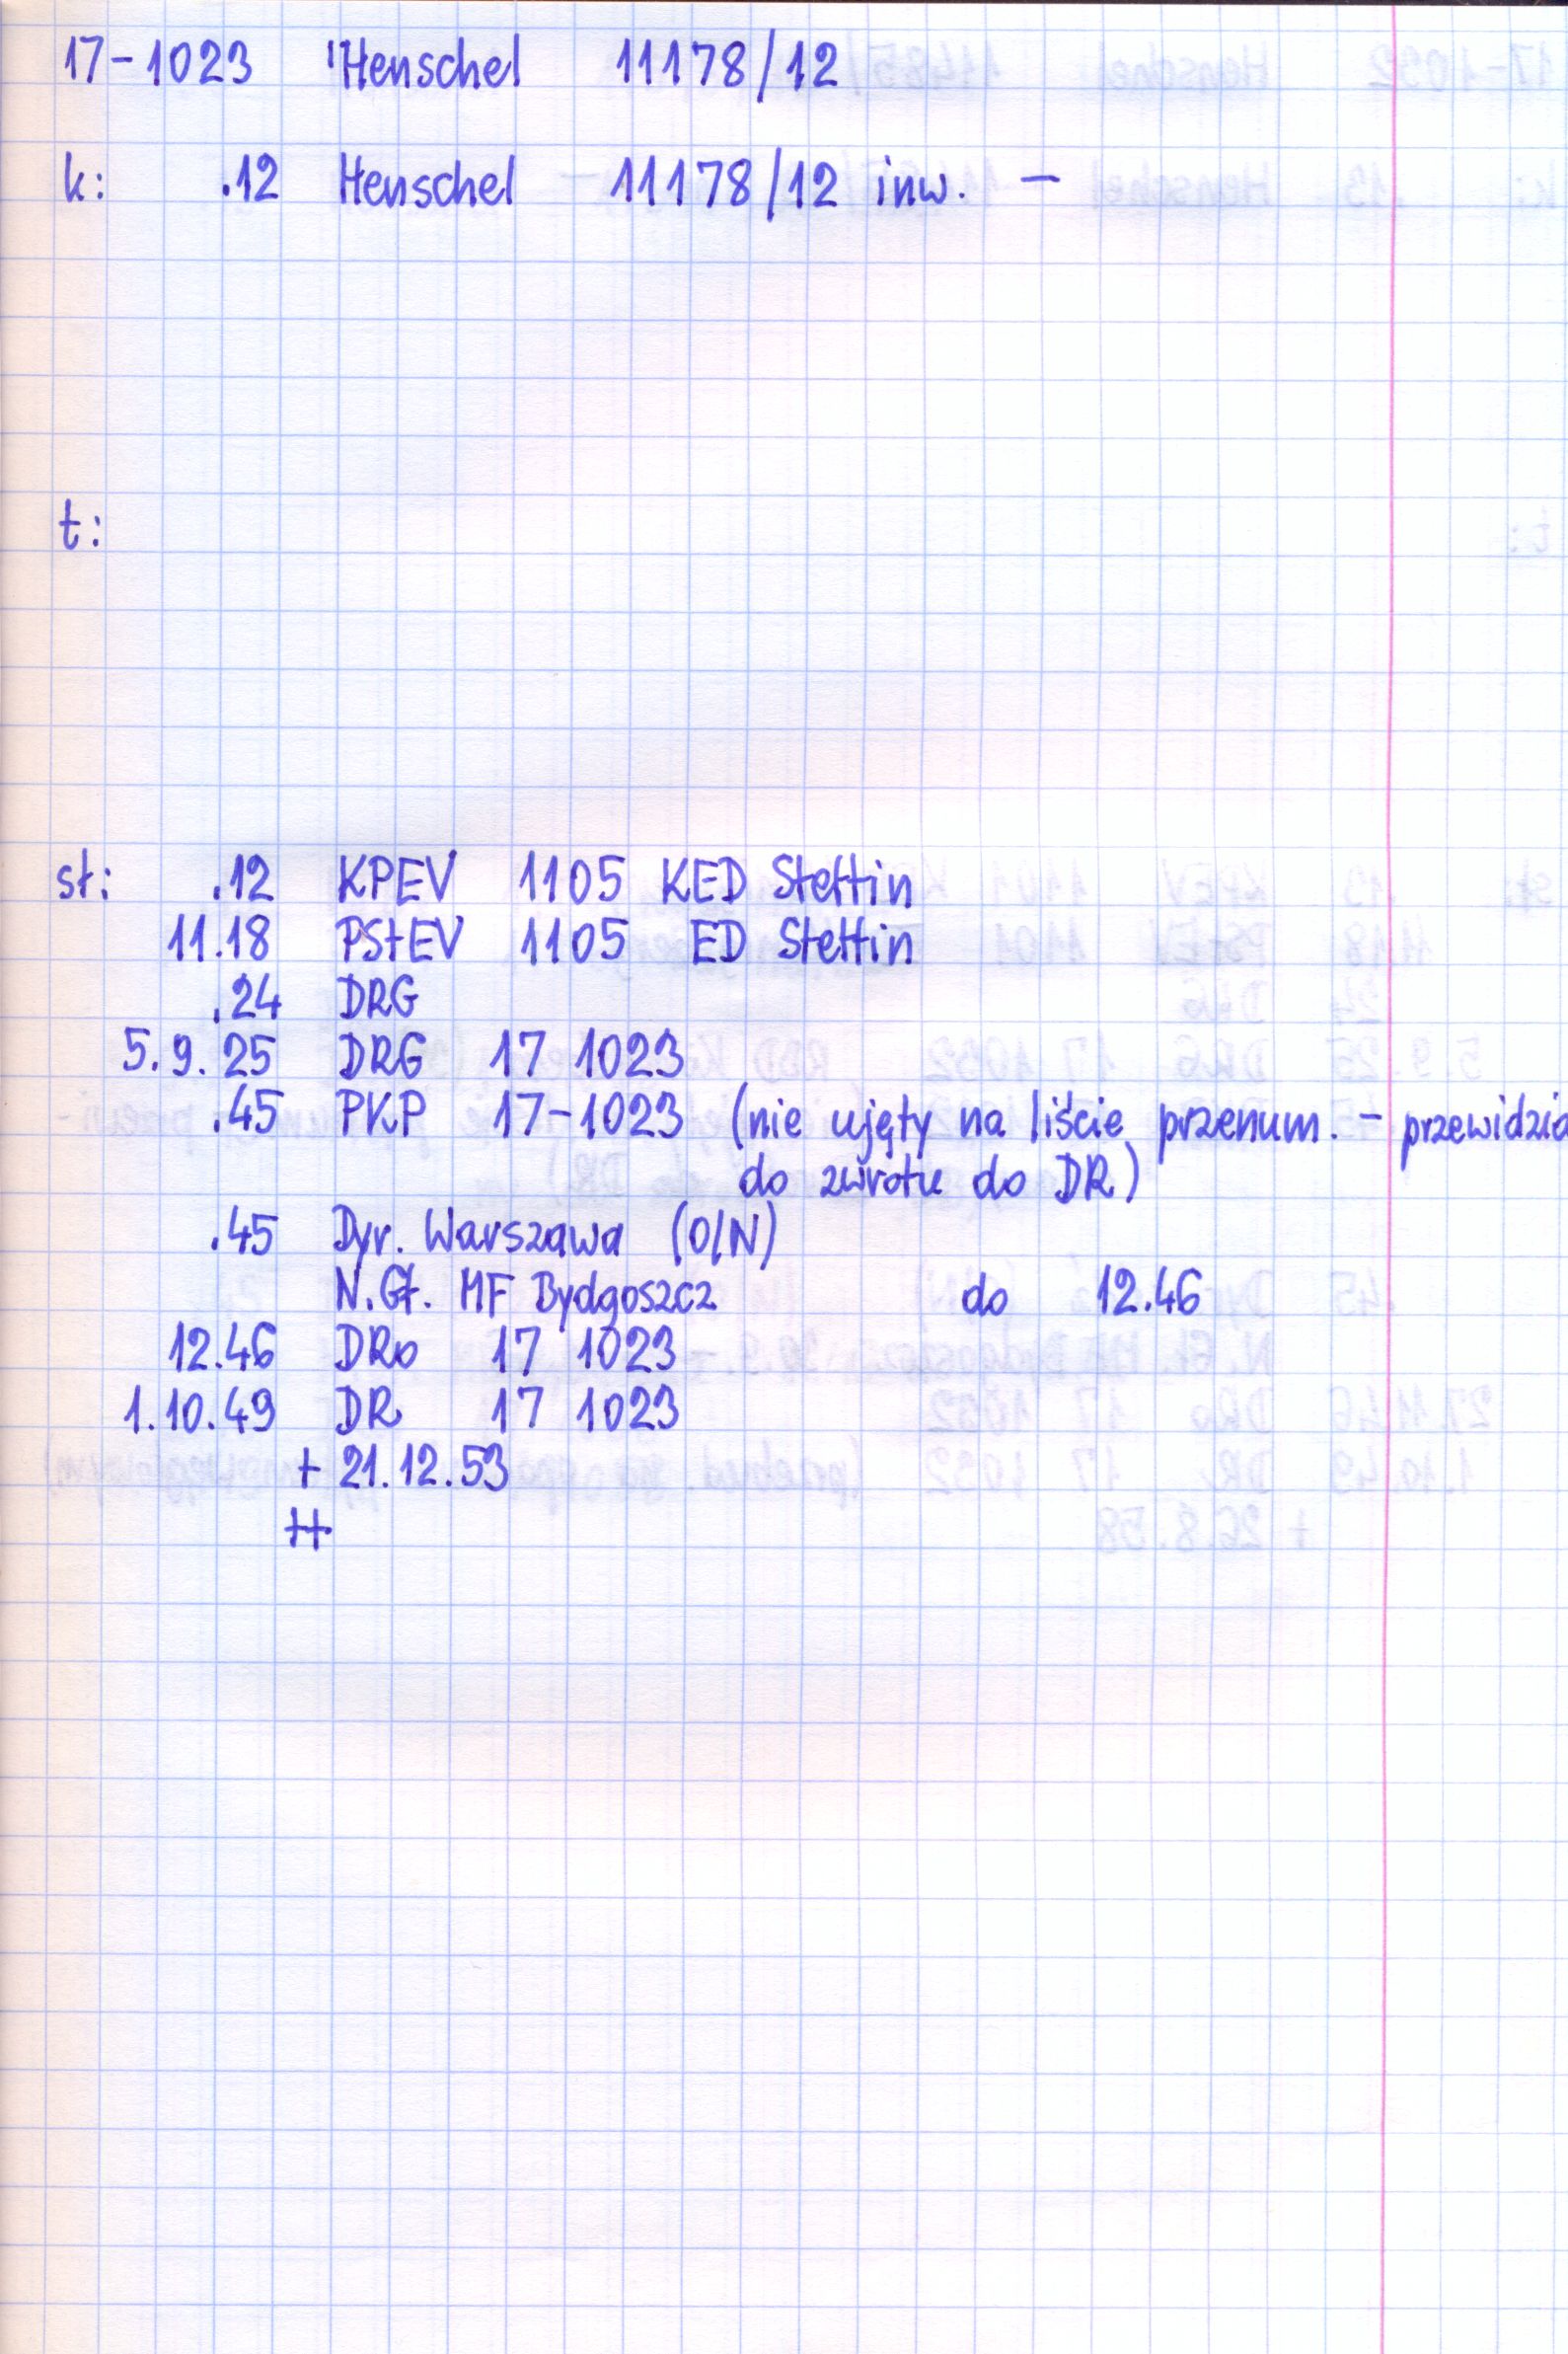 17-1023 Henschel 11178/12
k: .12 Henschel 11178/12 inw. -
t:
sł: .12 KPEV 1105 KED Stettin
11.18 PStEV 1105 ED Stettin
.24 DRG
5.9.25 DRG 17 1023
.45 PKP 17-1023 (nie ujęty na liście przenum. - przewidzia
do zwrotu do DR)
.45 Dyr. Warszawa (O/N)
N.Gł. MF Bydgoszcz do 12.46
12.46 DRo 17 1023
1.10.49 DR 17 1023
+ 21.12.53
++